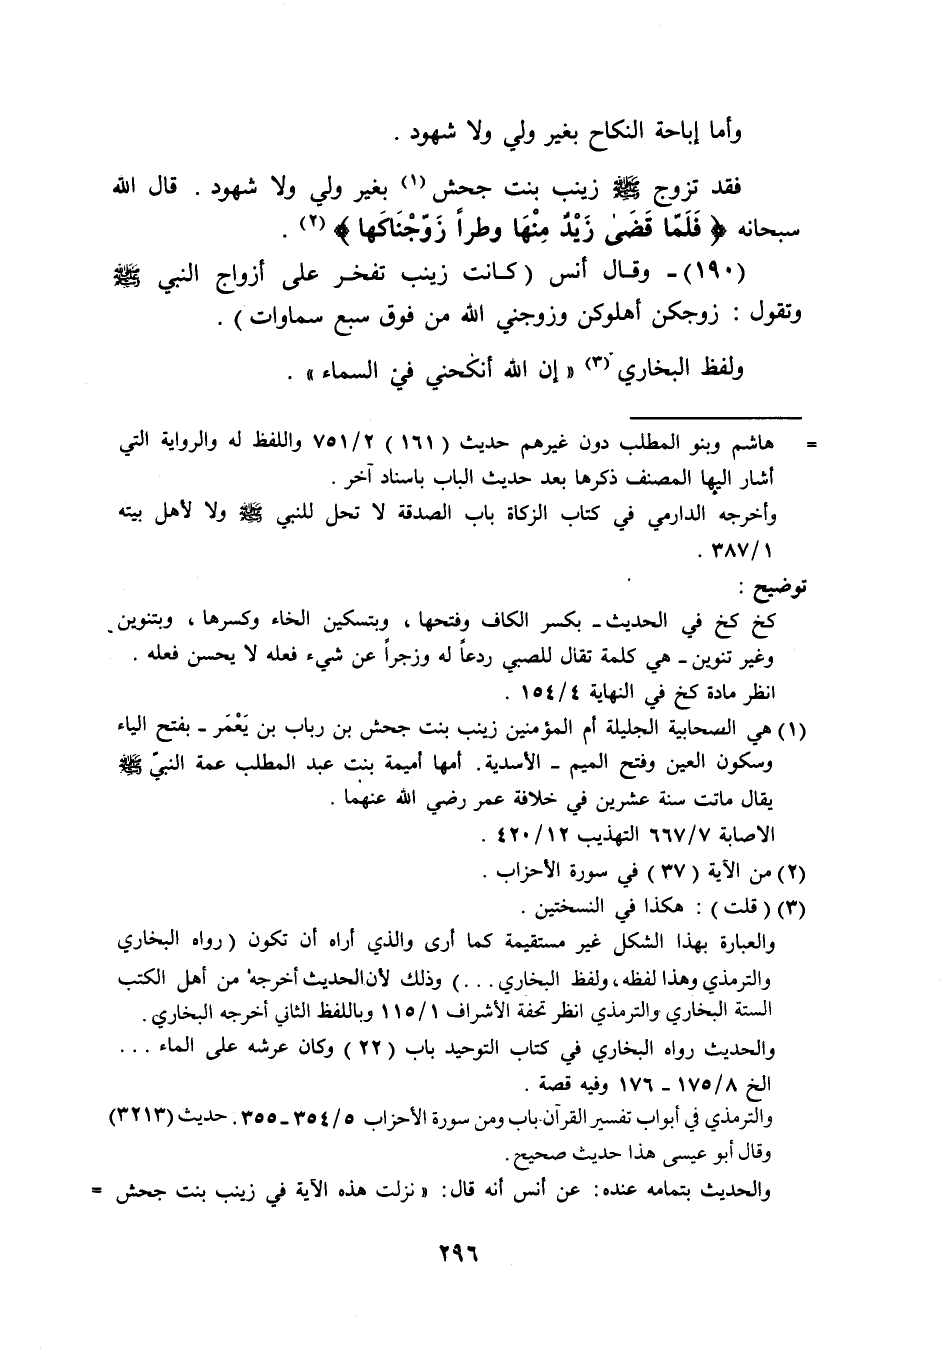 وأما إباحة النكاح بغير ولي ولا شهود .
فقد تزوج ﷺ زينب بنت جحش (١) بغير ولي ولا شهود . قال الله
سبحانه ﴿ فَلَمّا قَضَىٰ زَيْدٌ مِنْهَا وطراً زَوّجْنَاكَها ﴾ (٢) .
(١٩٠)- وقال أنس ( كانت زينب تفخر على أزواج النبي ﷺ
وتقول : زوجكن أهلوكن وزوجني الله من فوق سبع سماوات ) .
ولفظ البخاري (٣) « إن الله أنكحني في السماء » .
= هاشم وبنو المطلب دون غيرهم حديث ( ١٦١ ) ٧٥١/٢ واللفظ له والرواية التي
أشار اليها المصنف ذكرها بعد حديث الباب باسناد آخر .
وأخرجه الدارمي في كتاب الزكاة باب الصدقة لا تحل للنبي ﷺ ولا لأهل بيته
٣٨٧/١ .
توضيح :
كخ كخ في الحديث - بكسر الكاف وفتحها ، وبتسكين الخاء وكسرها ، وبتنوين
وغير تنوين - هي كلمة تقال للصبي ردعاً له وزجراً عن شيء فعله لا يحسن فعله .
انظر مادة كخ في النهاية ١٥٤/٤ .
(١) هي الصحابية الجليلة أم المؤمنين زينب بنت جحش بن رباب بن يَعْمَر - بفتح الياء
وسكون العين وفتح الميم - الأسدية. أمها أميمة بنت عبد المطلب عمة النبيّ ﷺ
يقال ماتت سنة عشرين في خلافة عمر رضي الله عنهما .
الاصابة ٦٦٧/٧ التهذيب ٤٢٠/١٢ .
(٢) من الآية ( ٣٧ ) في سورة الأحزاب .
(٣) ( قلت ) : هكذا في النسختين .
والعبارة بهذا الشكل غير مستقيمة كما أرى والذي أراه أن تكون ( رواه البخاري
والترمذي وهذا لفظه، ولفظ البخاري ...) وذلك لأن الحديث أخرجه من أهل الكتب
الستة البخاري والترمذي انظر تحفة الأشراف ١١٥/١ وباللفظ الثاني أخرجه البخاري .
والحديث رواه البخاري في كتاب التوحيد باب ( ٢٢ ) وكان عرشه على الماء ...
الخ ١٧٥/٨ - ١٧٦ وفيه قصة .
والترمذي في أبواب تفسير القرآن باب ومن سورة الأحزاب ٣٥٤/٥-٣٥٥. حديث (٣٢١٣)
وقال أبو عيسى هذا حديث صحيح .
والحديث بتمامه عنده : عن أنس أنه قال : « نزلت هذه الآية في زينب بنت جحش =
٢٩٦